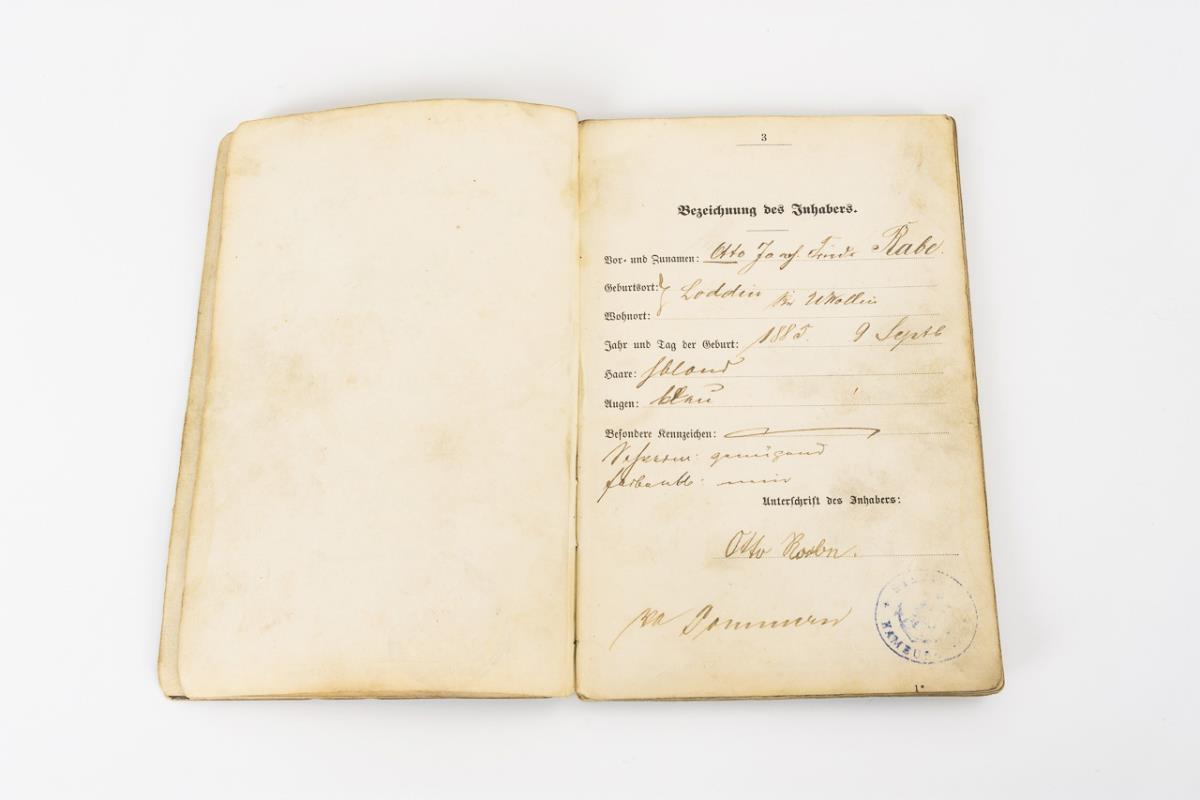 3
Bezeichnung des Inhabers.
Vor- und Zunamen: Otto Rabe.
Geburtsort: Loddin Wollin
Wohnort:
Jahr und Tag der Geburt: 1885. 9 Septb
Haare: blond
Augen: blau
Besondere Kennzeichen:
genügend
Unterschrift des Inhabers:
Otto
Pommern
HAMBURG
1*